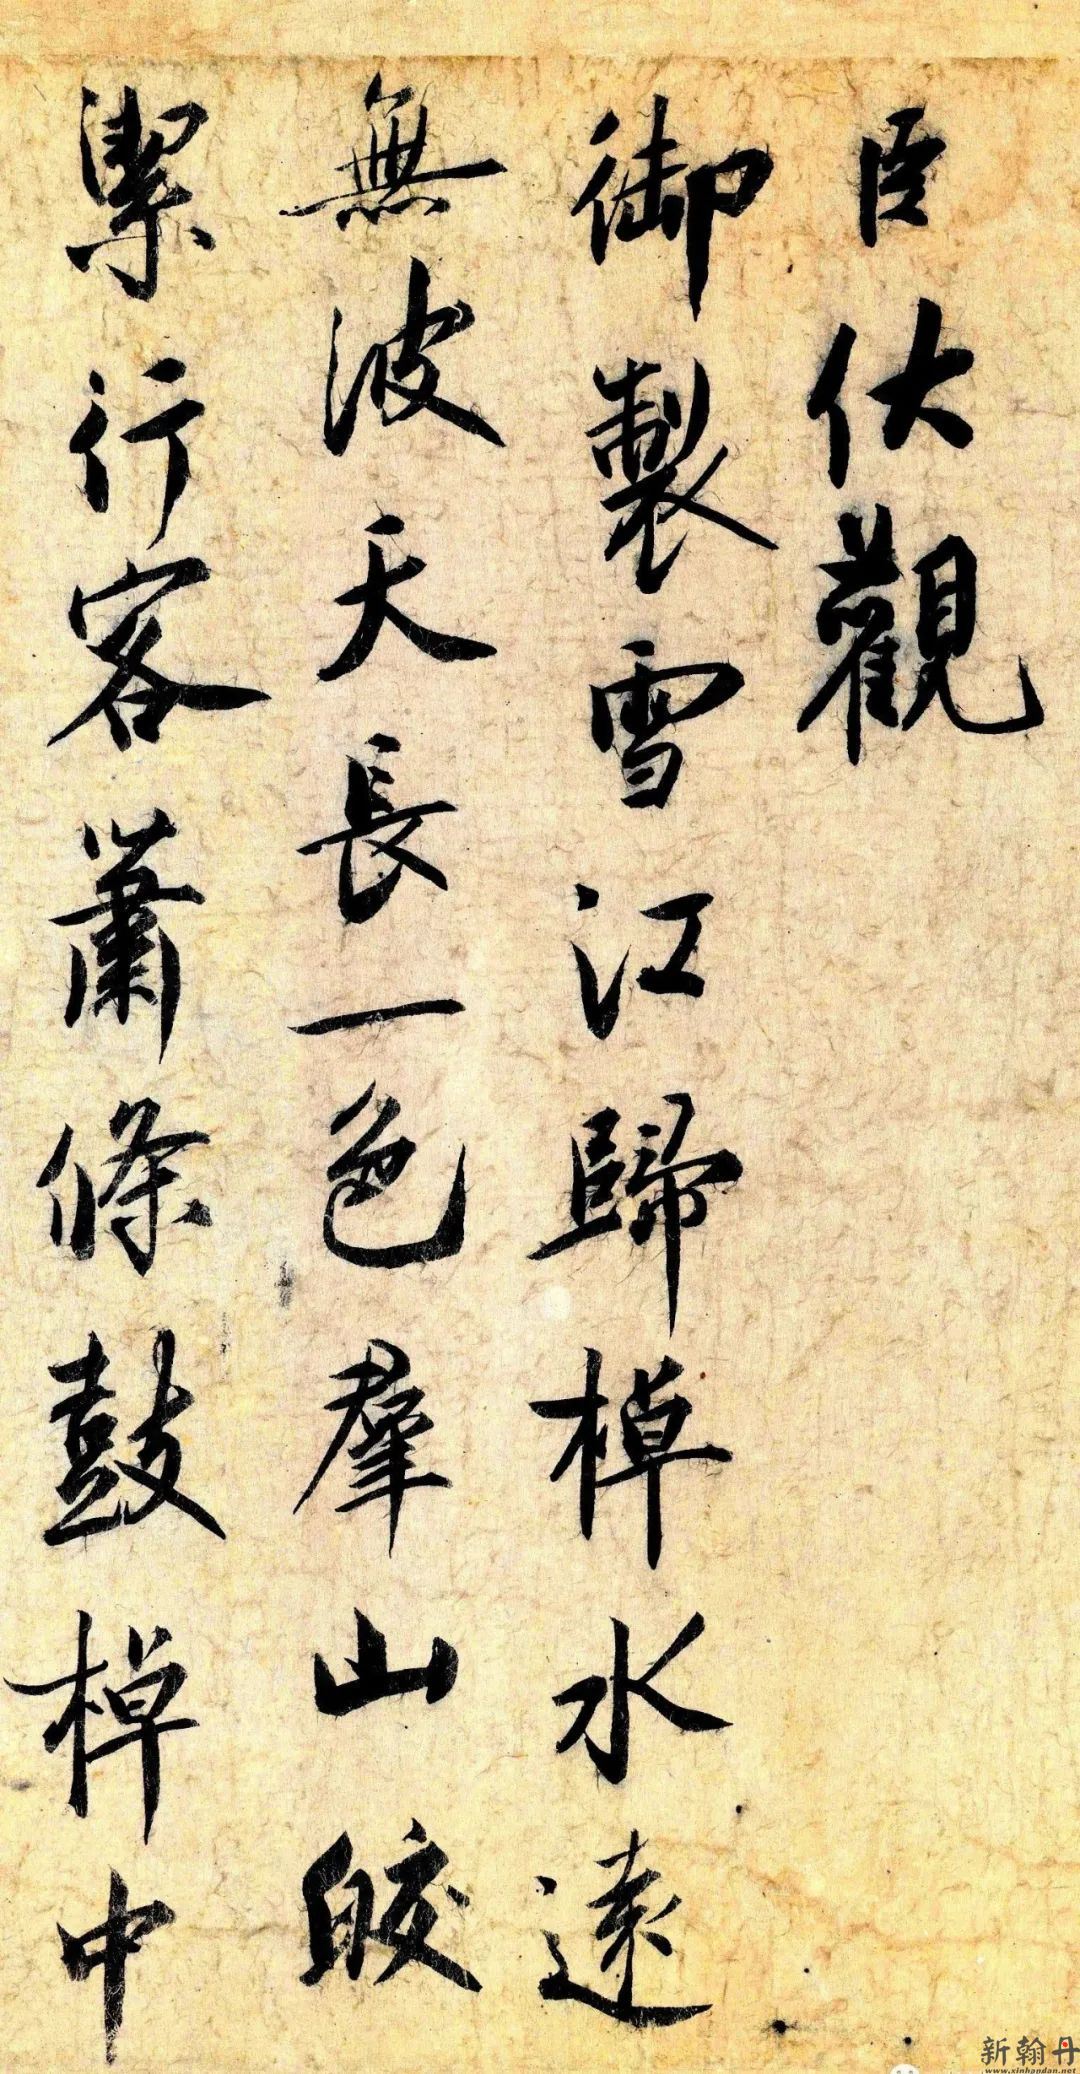 臣伏觀
御製雪江歸棹水遠
無波天長一色羣山皎
潔行客蕭條鼓棹中
新翰丹
www.xinhandan.net